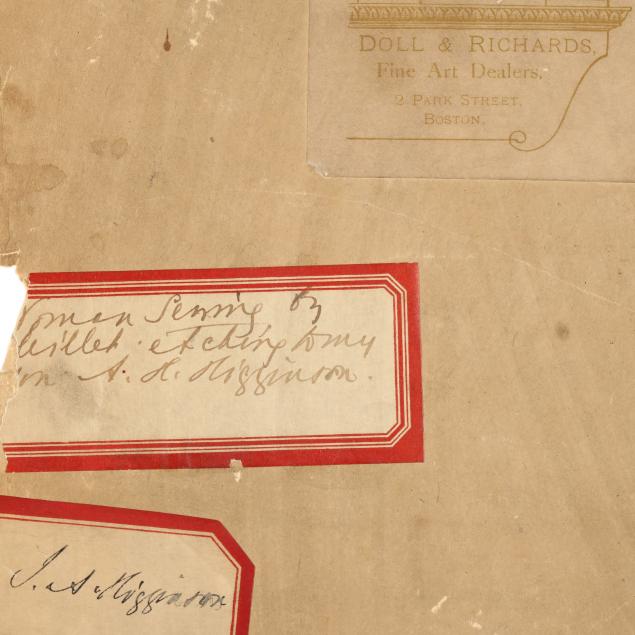 DOLL & RICHARDS,
Fine Art Dealers,
2 PARK STREET,
BOSTON.
Woman Sewing by
Millet. etching to my
son A. H. Higginson.
J. A. Higginson